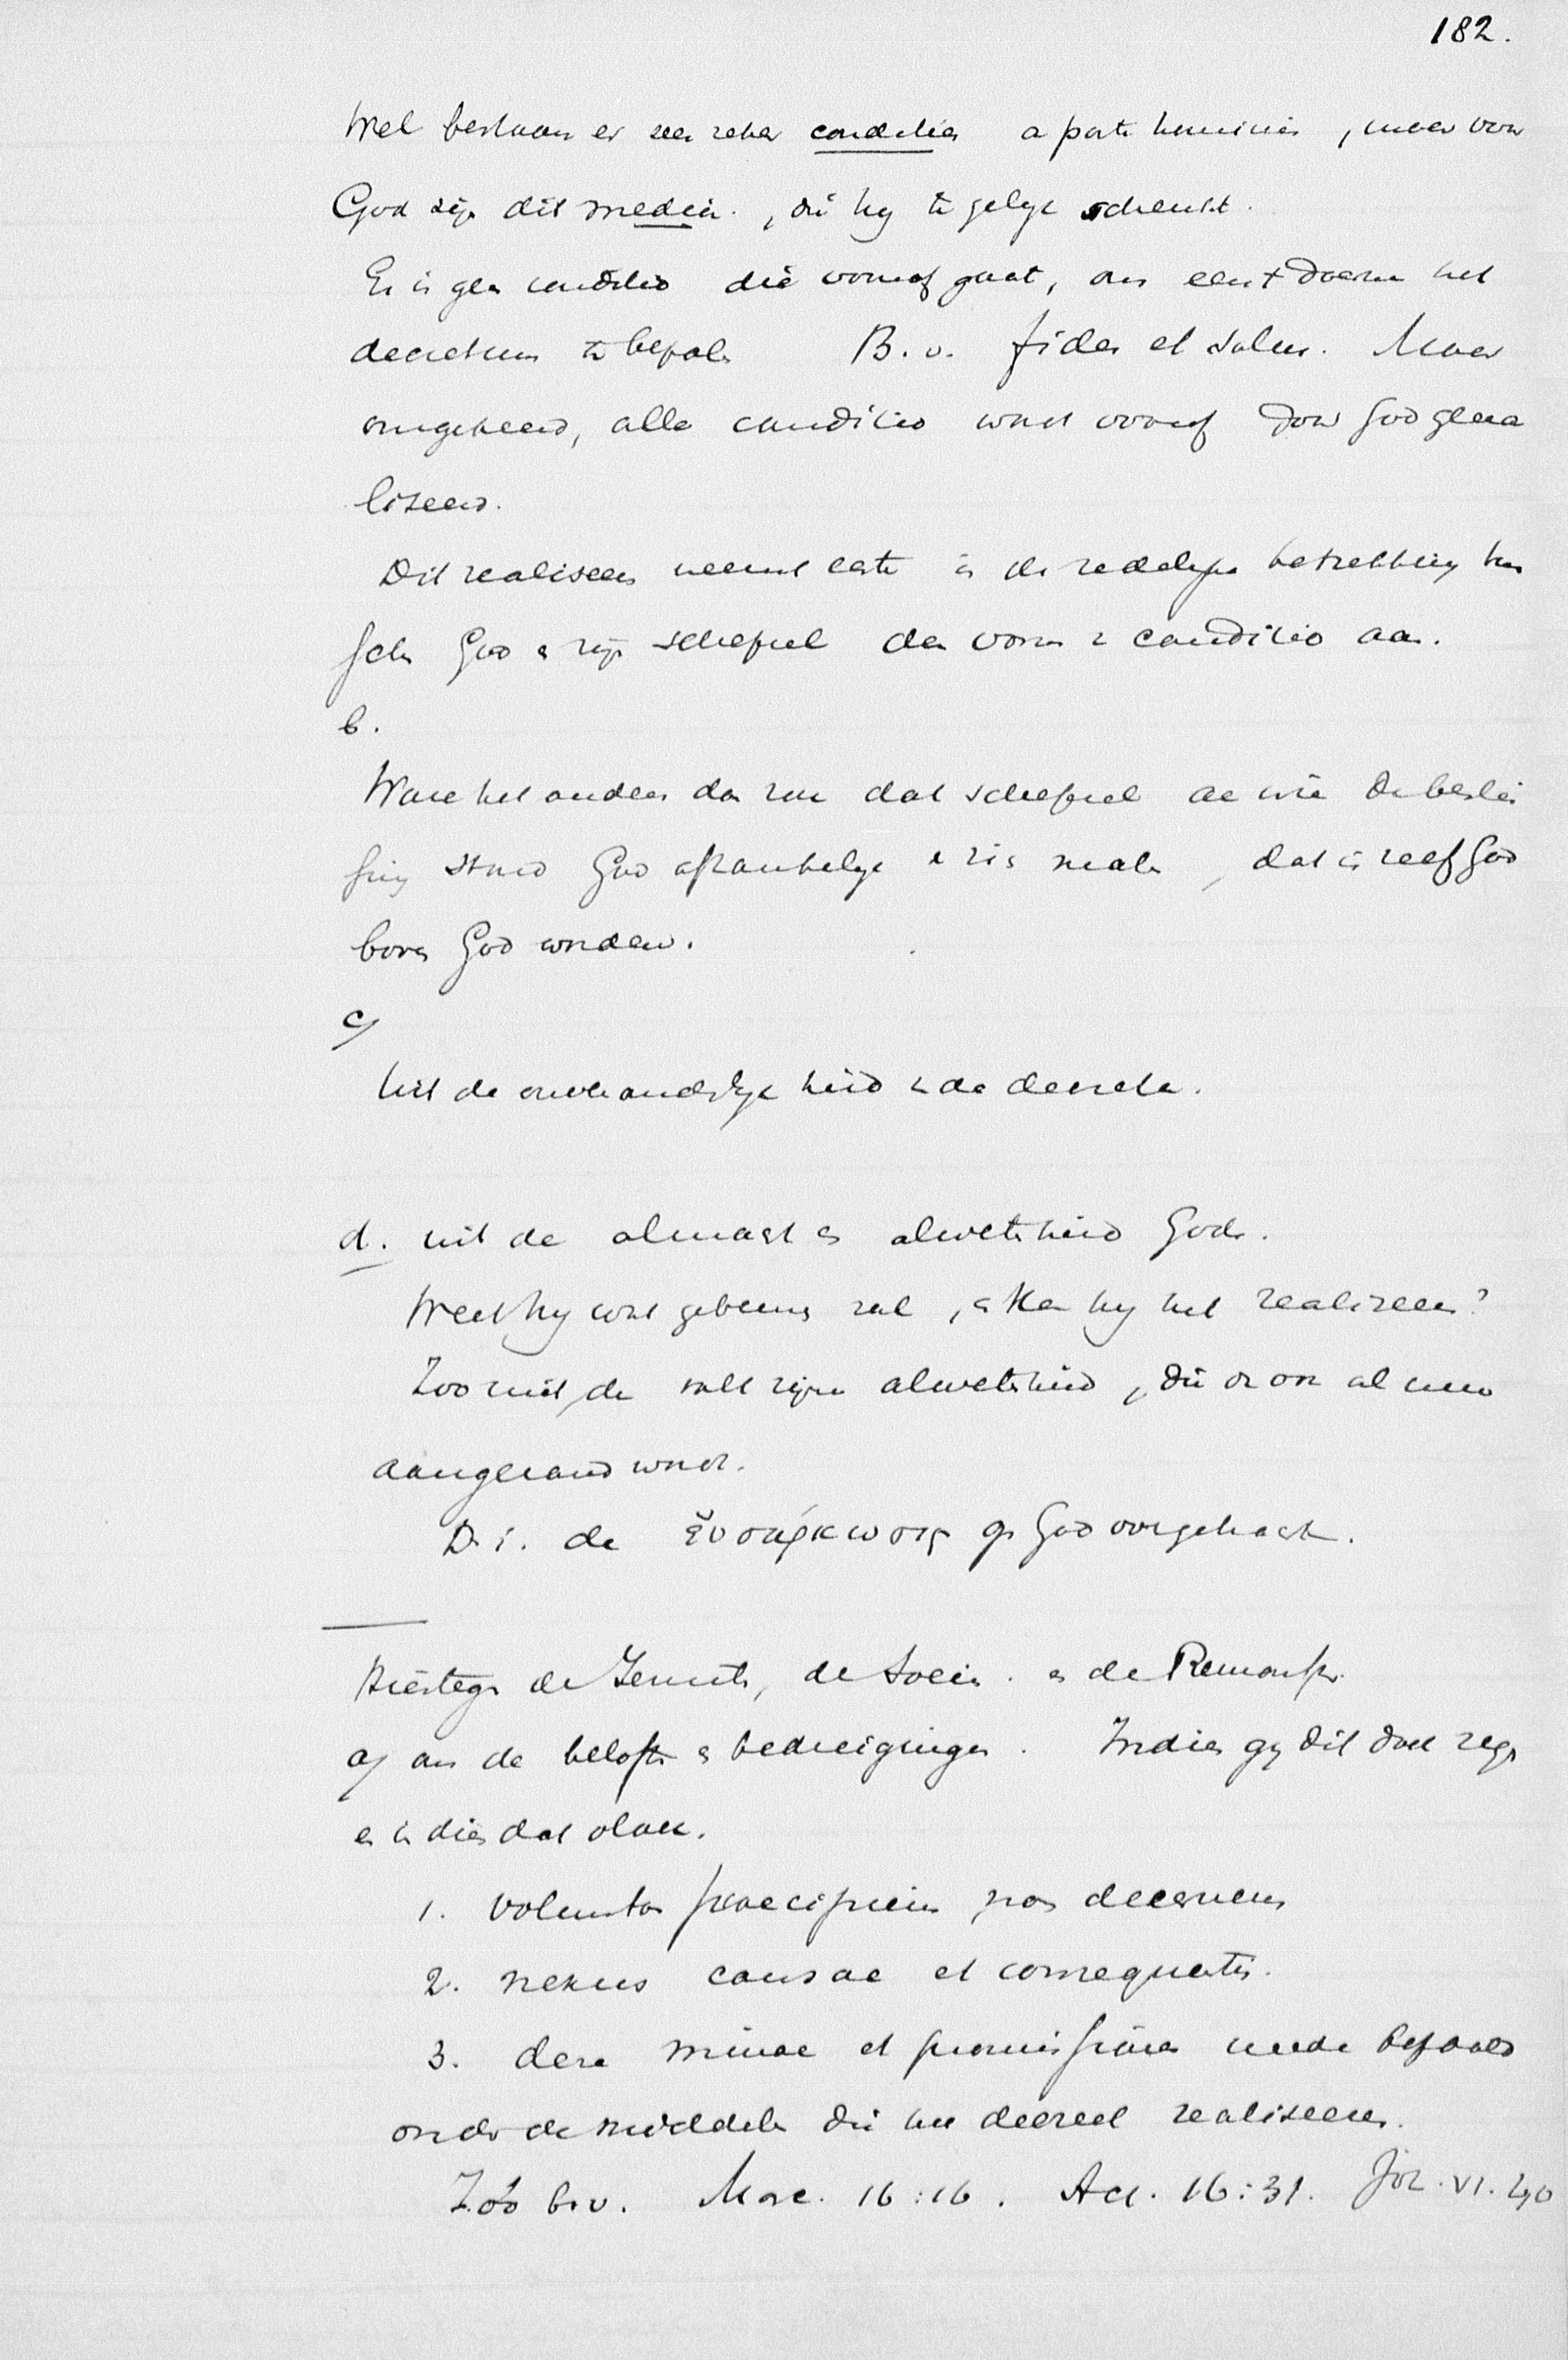 182.
Wel bestaan er zeer zeker conditiës a parte hominis, maar voor
God zijn dit media, die hij te gelijk schenkt.
Er is geen conditio die vooraf gaat, om eerst daarna het
decretum te bepalen B.v. fides et salus. Maar
omgekeerd, alle conditio wordt vooraf door God gerea
liseerd.
Dit realiseeren neemt echter in de redelijke betrekking tus
schen God en zijn schepsel den vorm v. conditio aan.
b.
Ware het anders dan zou dat schepsel aan wie de beslis
sing stond God afhankelijk v. zich maken, dat is zelf God
boven God worden.
c/
Uit de onveranderlijkheid v. de decreten.
d. uit de almacht en alwetenheid Gods.
Weet hij wat gebeuren zal, en kan hij het realiseeren?
Zoo niet, de valt zijne alwetenheid, die dan ook al meer
aangerand wordt.
D.i. de ἐνσάρκωσις op God overgebracht.
Hiertegen de Jesuiten, de Socin. en de Remonstr.
a/ aan de beloften en bedreigingen. Indien gij dit doet zegen
en indien dat vloek.
1. voluntas praecipiens non decernens
2. nexus causae et consequentis.
3. deze minae et promissiones mede bepaald
onder de middelen die het decreet realiseeren.
Zoo b.v. Marc. 16:16. Act. 16:31. Joh. VI. 40